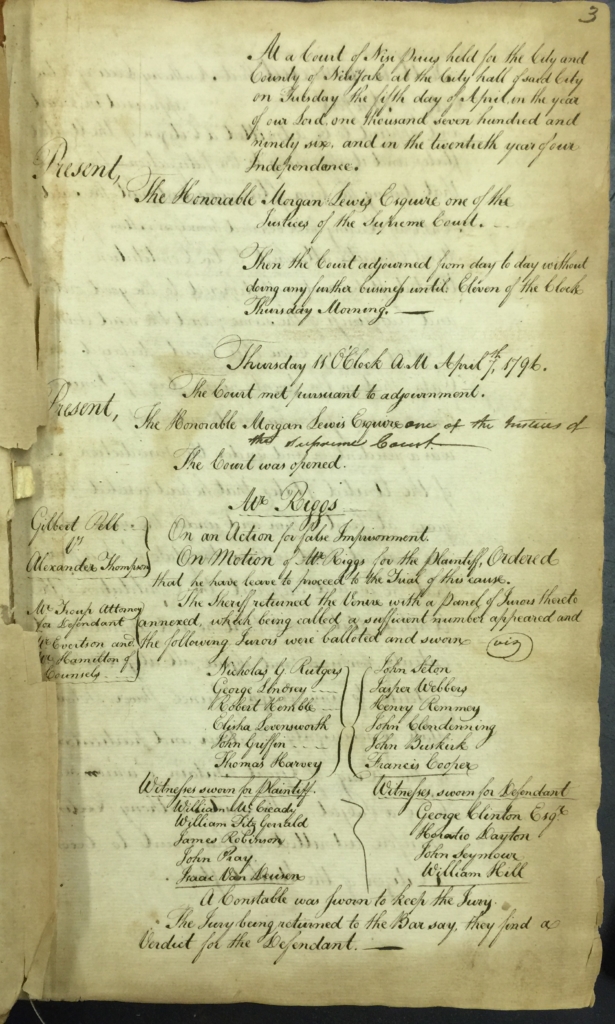 3
At a Court of Nisi Prius held for the City and
County of NewYork at the City hall of said City
on Tuesday the fifth day of April in the year
of our Lord one thousand seven hundred and
ninety six, and in the twentieth year of our
Independance.
Present,
The Honorable Morgan Lewis Esquire one of the
Justices of the Supreme Court.
Then the Court adjourned from day to day without
doing any further business until Eleven of the Clock
Thursday Morning.
Thursday 11 OClock A.M April 7th, 1796.
The Court met pursuant to adjournment.
Present,
The Honorable Morgan Lewis Esquire one of the Justices of
the Supreme Court.
The Court was opened.
Mr. Riggs
Gilbert Pell
vs
Alexander Thompson
On an Action for false Imprisonment.
On Motion of Mr. Riggs for the Plaintiff, Ordered
that he have leave to proceed to the Trial of this cause.
Mr Troup Attorney
for Defendant
Mr Evertson and
Mr Hamilton of
Counsels
The Sheriff returned the Venire with a Panel of Jurors thereto
annexed, which being called a sufficient number appeared and
the following Jurors were balloted and sworn (viz)
Nicholas G Rutgers
George Lindsey
Robert Kemble
Elisha Levensworth
John Griffin
Thomas Harvey
John Seton
Jasper Webbers
Henry Remmey
John Clendenning
John Buskirk
Francis Cooper
Witnesses sworn for Plaintiff.
William McCready
William Fitz Gerrald
James Robinson
John Pray
Isaac Van Deusen
Witnesses sworn for Defendant
George Clinton Esqr
Horatio Dayton
John Seymour
William Hill
A Constable was sworn to keep the Jury.
The Jury being returned to the Bar say, they find a
Verdict for the Defendant.